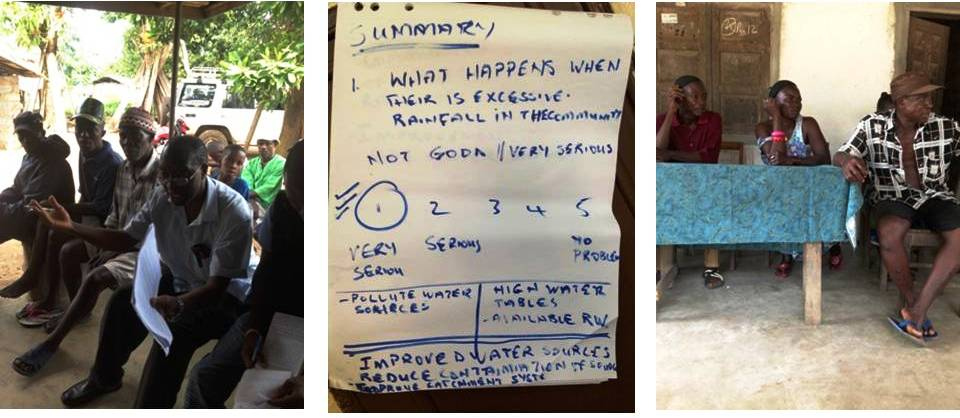 SUMMARY
1. WHAT HAPPENS WHEN
THEIR IS EXCESSIVE.
RAINFALL IN THE COMMUNITY
NOT GODA // VERY SERIOUS
1 2 3 4 5
VERY SERIOUS NO
SERIOU PROBLEM
- POLLUTE WATER HIGH WATER
SOURCES TABLES
- AVAILABLE RW
IMPROVED WATER SOURCES
REDUCE CONTAMINATION OF
IMPROVE CATCHMENT SYSTE